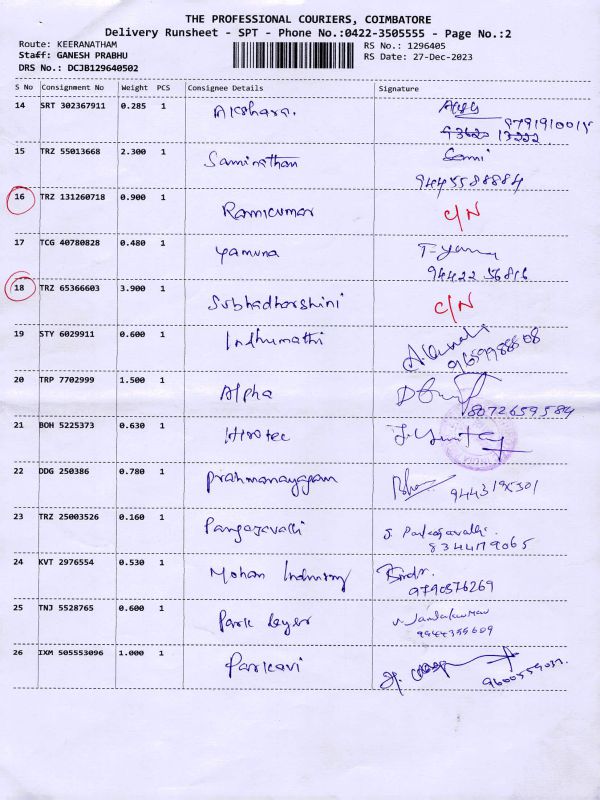 THE PROFESSIONAL COURIERS, COIMBATORE
Delivery Runsheet - SPT - Phone No.:0422-3505555 - Page No.:2
Route: KEERANATHAM
RS No.: 1296405
Staff: GANESH PRABHU
RS Date: 27-Dec-2023
DRS No.: DCJB129640502
S No Consignment No Weight PCS Consignee Details Signature
14 SRT 302367911 0.285 1 Akshara.
15 TRZ 55013668 2.300 1 Saminathan Sami
9445588884
16 TRZ 131260718 0.900 1 Ramkumar C/N
17 TCG 40780828 0.480 1 Yamuna
94422 56816
18 TRZ 65366603 3.900 1 Subhadharshini C/N
19 STY 6029911 0.600 1 Indhumathi
9659988508
20 TRP 7702999 1.500 1 Alpha
8072659584
21 BOH 5225373 0.630 1
22 DDG 250386 0.780 1
23 TRZ 25003526 0.160 1 Pangajavalli
24 KVT 2976554 0.530 1 Mohan
9790576269
25 TNJ 5528765 0.600 1 Park
9944355609
26 IXM 505553096 1.000 1 Parkavi